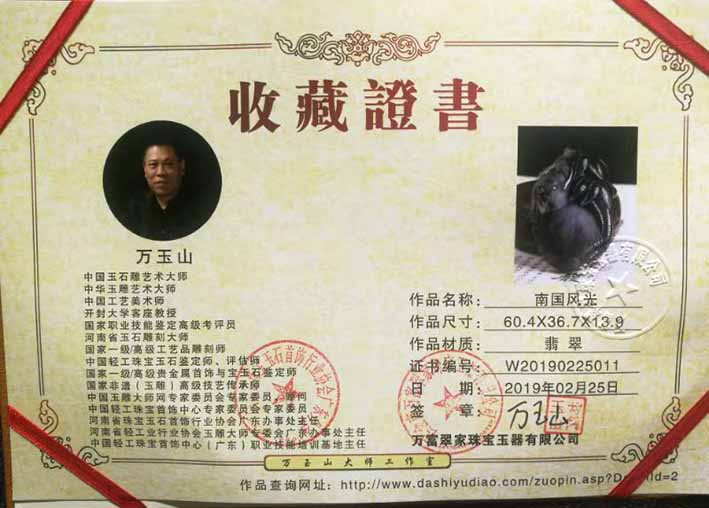 收藏證書
万玉山
中国玉石雕艺术大师
中华玉雕艺术大师
中国工艺美术师
开封大学客座教授
国家职业技能鉴定高级考评员
河南省玉石雕刻大师
国家一级/高级工艺品雕刻师
中国轻工珠宝玉石鉴定师、评估师
国家一级/高级贵金属首饰与宝玉石鉴定师
国家非遗（玉雕）高级技艺传承师
中国玉雕大师网专家委员会专家委员，顾问
中国轻工珠宝首饰中心专家委员会专家委员
河南省珠宝玉石首饰行业协会广东办事处主任
河南省轻工业行业协会玉雕大师专委会广东办事处主任
中国轻工珠宝首饰中心（广东）职业技能培训基地主任
作品名称：南国风光
作品尺寸：60.4X36.7X13.9
作品材质：翡翠
证书编号：W20190225011
日期：2019年02月25日
签章：万玉山
万富翠家珠宝玉器有限公司
万玉山大师工作室
作品查询网址：http://www.dashiyudiao.com/zuopin.asp?